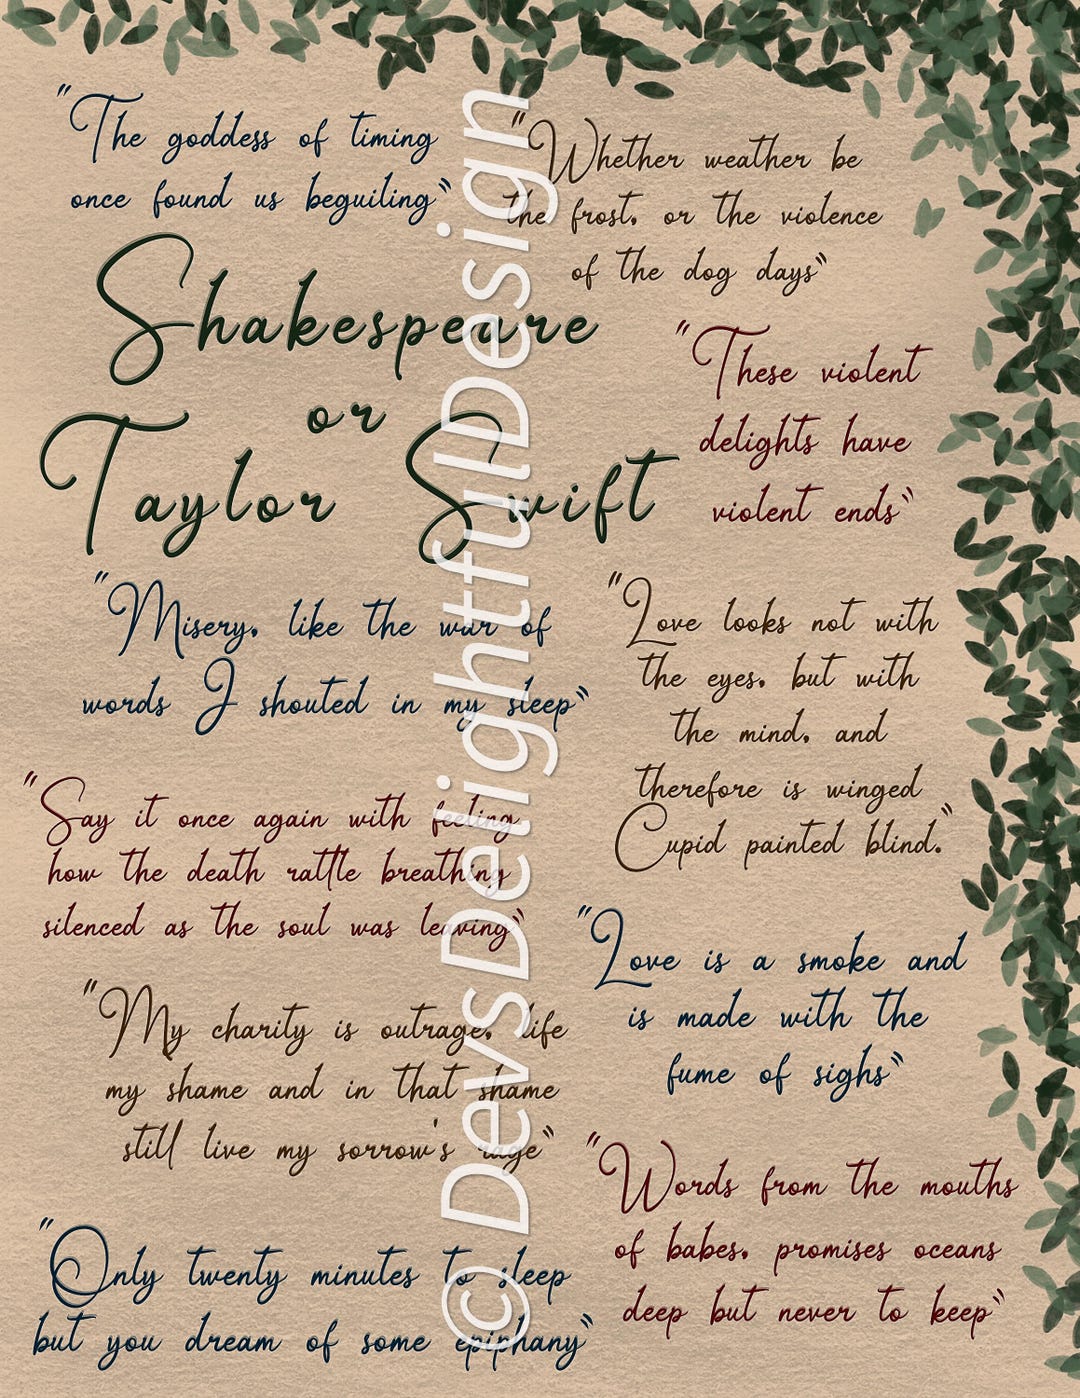 "The goddess of timing
once found us beguiling"
"Whether weather be
the frost, or the violence
of the dog days"
Shakespeare
or
Taylor Swift
"These violent
delights have
violent ends"
"Misery, like the war of
words I shouted in my sleep"
"Love looks not with
the eyes, but with
the mind, and
therefore is winged
Cupid painted blind."
"Say it once again with feeling
how the death rattle breathing
silenced as the soul was leaving"
"Love is a smoke and
is made with the
fume of sighs"
"My charity is outrage, life
my shame and in that shame
still live my sorrow's rage"
"Words from the mouths
of babes, promises oceans
deep but never to keep"
"Only twenty minutes to sleep
but you dream of some epiphany"
© DevsDelightfulDesign